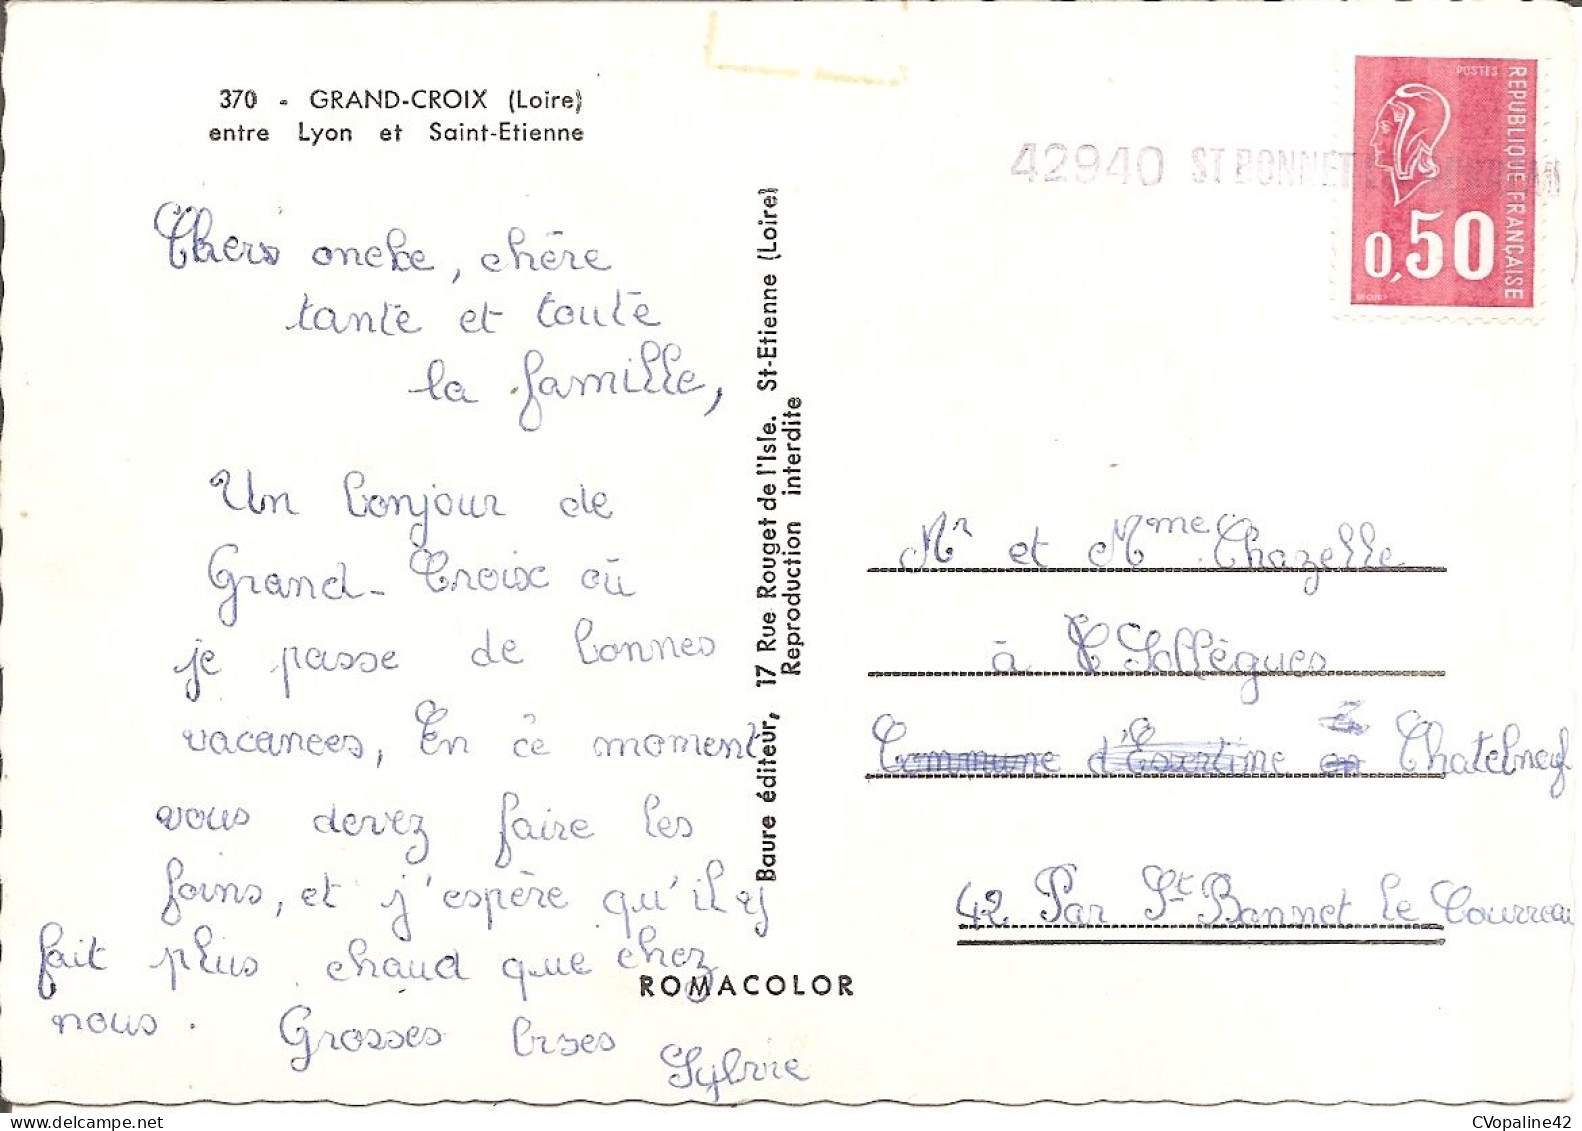 370 - GRAND-CROIX (Loire)
entre Lyon et Saint-Etienne
Chers oncle, chère
tante et toute
la famille,
Un bonjour de
Grand-Croix où
je passe de bonnes
vacances, En ce moment
vous devez faire les
foins, et j'espère qu'il y
fait plus chaud que chez
nous. Grosses bises
Sylvie
Baure éditeur, 17 Rue Rouget de l'Isle. St-Etienne (Loire)
Reproduction interdite
ROMACOLOR
42940 ST BONNET
POSTES
REPUBLIQUE FRANÇAISE
0,50
Mr et Mme Chazelle
à Sollègues
Commune d'Essertine en Chatelneuf
42 Par St Bonnet le Courreau
CVopaline42